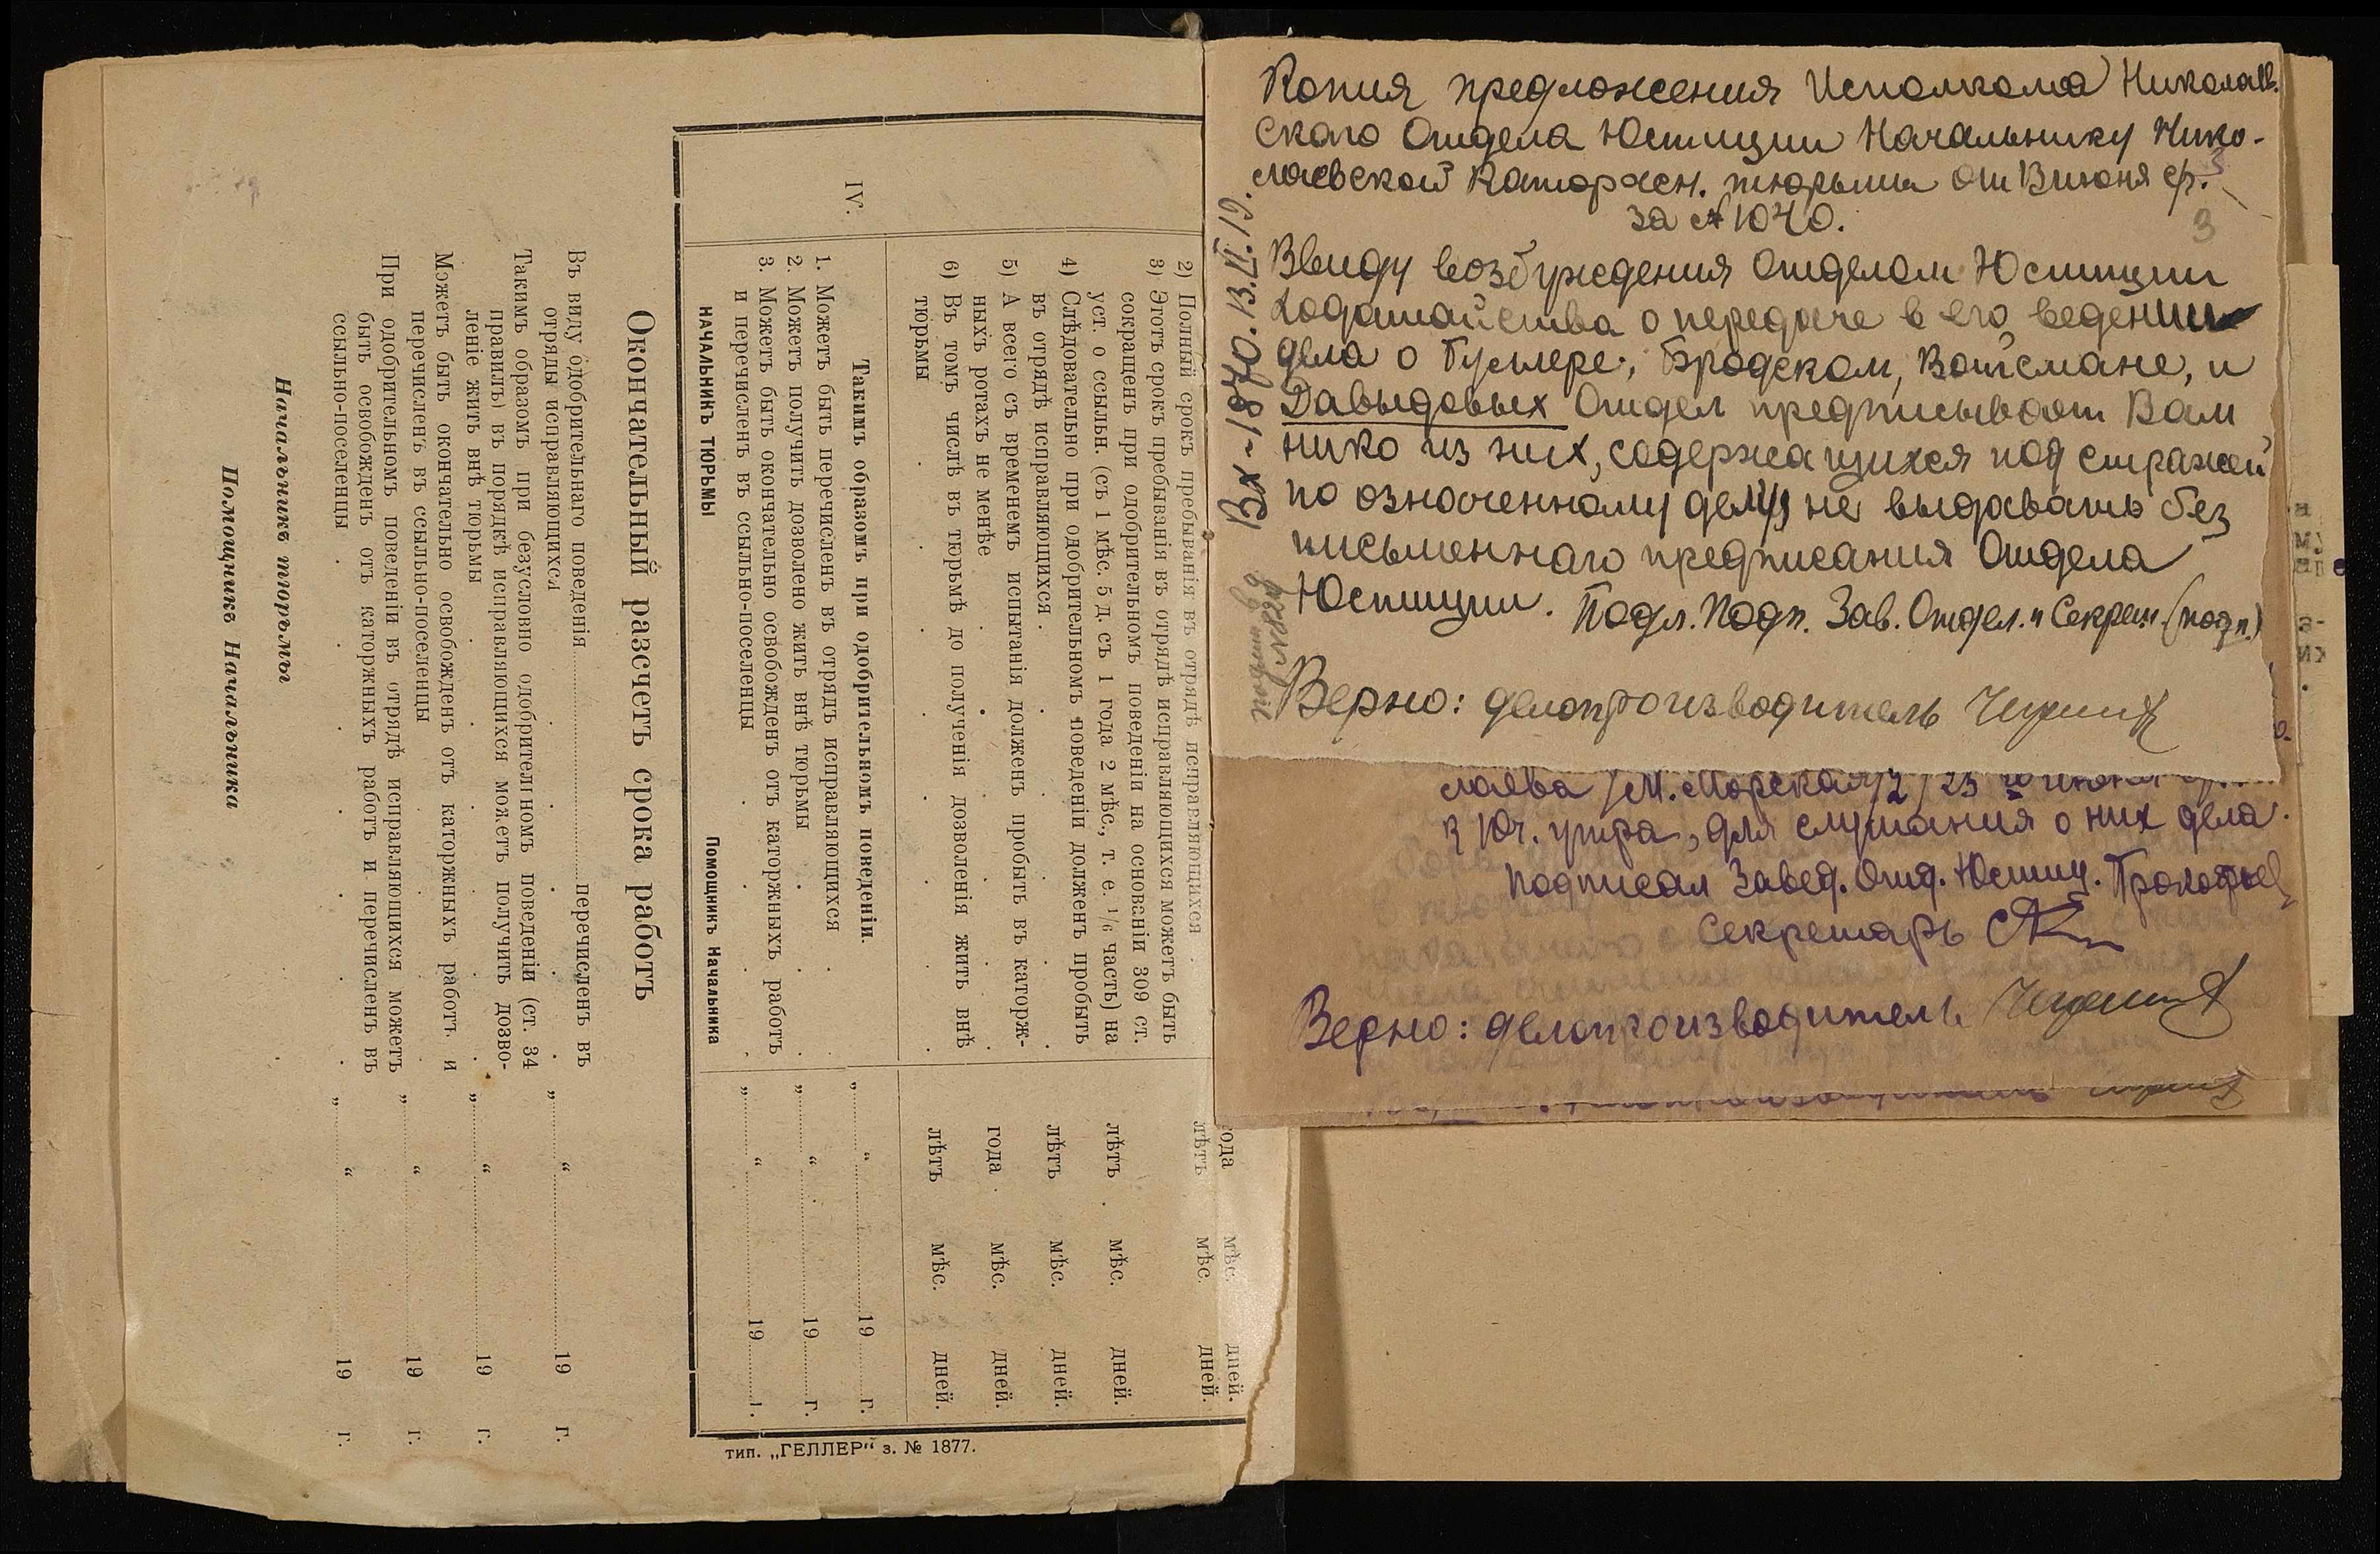 2) Полный срокъ пребыванія въ отрядѣ исправляющихся
3) Этотъ срокъ пребыванія въ отрядѣ исправляющихся можетъ быть
сокращенъ при одобрительномъ поведеніи на основаніи 309 ст.
уст. о ссыльн. (съ 1 мѣс. 5 д. съ 1 года 2 мѣс., т. е. 1/6 часть) на
4) Слѣдовательно при одобрительномъ поведеніи долженъ пробыть
въ отрядѣ исправляющихся
5) А всего съ временемъ испытанія долженъ пробыть въ каторж-
ныхъ ротахъ не менѣе
6) Въ томъ числѣ въ тюрьмѣ до полученія дозволенія жить внѣ
тюрьмы
года мѣс. дней.
лѣтъ мѣс. дней.
лѣтъ мѣс. дней.
лѣтъ мѣс. дней.
года мѣс. дней.
лѣтъ мѣс. дней.
IV.
Такимъ образомъ при одобрительномъ поведеніи.
1. Можетъ быть перечисленъ въ отрядъ исправляющихся „ “ 19 г.
2. Можетъ получить дозволено жить внѣ тюрьмы „ “ 19 г.
3. Можетъ быть окончательно освобожденъ отъ каторжныхъ работъ
и перечисленъ въ ссыльно-поселенцы „ “ 19 г.
НАЧАЛЬНИКЪ ТЮРЬМЫ Помощникъ Начальника
Окончательный разсчетъ срока работъ
Въ виду одобрительнаго поведенія перечисленъ въ
отряды исправляющихся „ “ 19 г.
Такимъ образомъ при безусловно одобрительномъ поведеніи (ст. 34
правилъ) въ порядкѣ исправляющихся можетъ получить дозво-
леніе жить внѣ тюрьмы „ “ 19 г.
Можетъ быть окончательно освобожденъ отъ каторжныхъ работъ и
перечисленъ въ ссыльно-поселенцы „ “ 19 г.
При одобрительномъ поведеніи въ отрядѣ исправляющихся можетъ
быть освобожденъ отъ каторжныхъ работъ и перечисленъ въ
ссыльно-поселенцы „ “ 19 г.
Начальникъ тюрьмы
Помощникъ Начальника
тип. „ГЕЛЛЕР“ з. № 1877.
Копия предложения Исполкома Николаев.
ского Отдела Юстиции Начальнику Нико-
лаевской Каторжн. тюрьмы от 13 июня ср.
за № 1040.
3
Ввиду возбуждения Отделом Юстиции
ходатайства о передаче в его ведении
дела о Гуслере, Бродском, Вайсмане, и
Давыдовых Отдел предписывает Вам
нико из них, содержащихся под стражей
по означенному делу не выдавать без
письменнаго предписания Отдела
Юстиции. Подл. Подп. Зав. Отдел. и Секрет. (подп.)
Верно: делопроизводитель
Вх-1870. 13.VI.19.
лаева /М. Морская 2/ 23 го июня
к 10 ч. утра, для слушания о них дела.
подписал Завед. Отд. Юстиц. Прокофьев
Секретарь
Верно: делопроизводитель